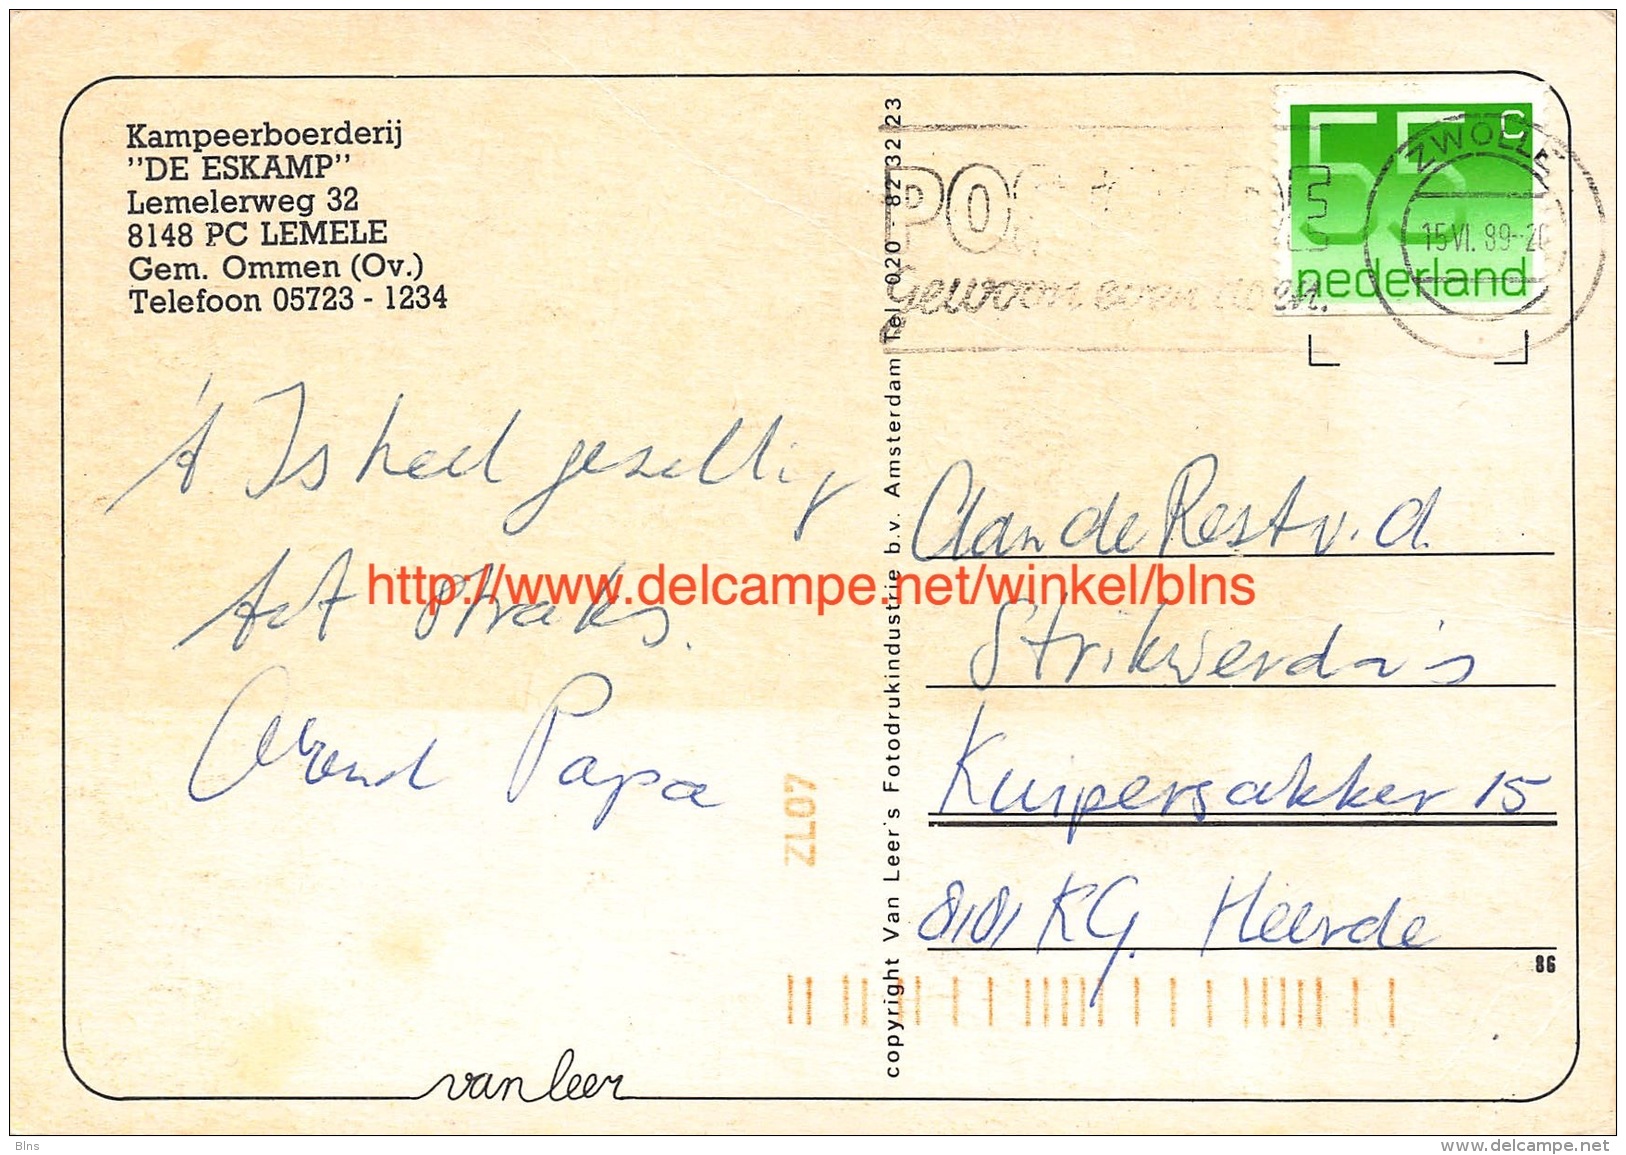 Kampeerboerderij
"DE ESKAMP"
Lemelerweg 32
8148 PC LEMELE
Gem. Ommen (Ov.)
Telefoon 05723 - 1234
't Is heel gezellig
tot straks.
Arend Papa
ZL07
van leer
copyright Van Leer's Fotodrukindustrie b.v. Amsterdam Tel. 020 - 82 32 23
Gewoon even doen.
55 c
nederland
ZWOLLE
15 VI. 89-20
Aan de Rest v.d.
Strikwerda's
Kuipersakker 15
8181 KG. Heerde
86
http://www.delcampe.net/winkel/blns
Blns
www.delcampe.net